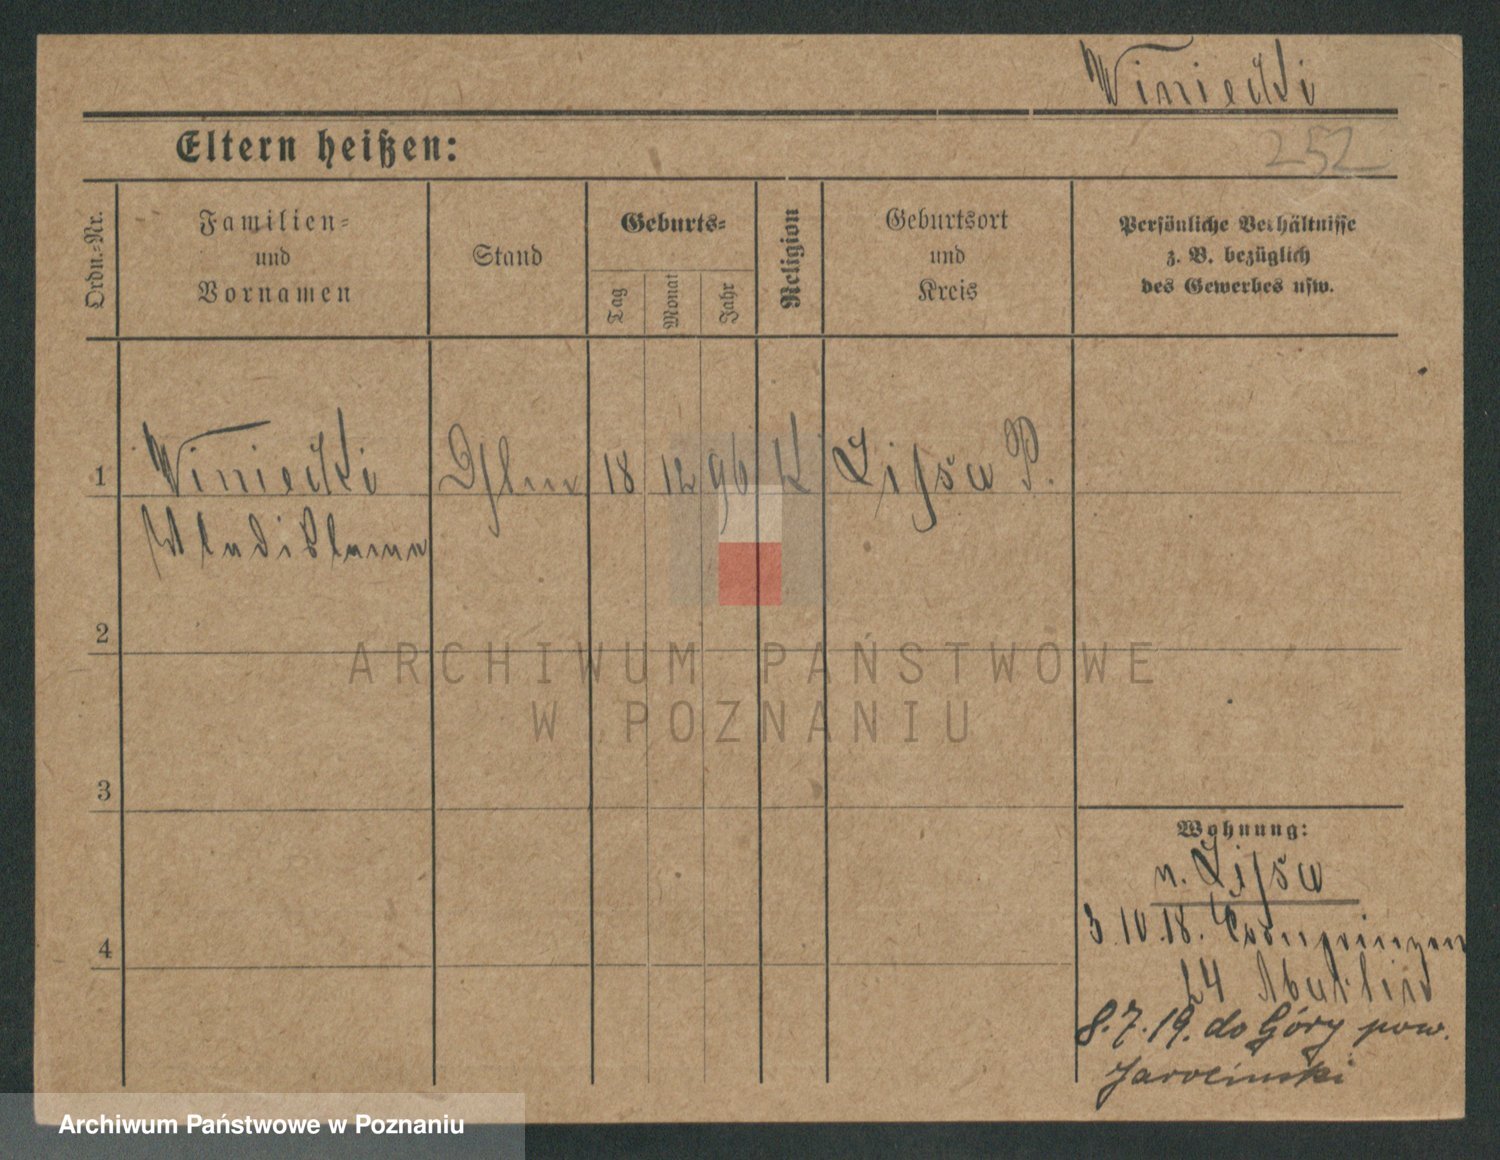 Winiecki
252
Eltern heißen:
Ordn.-Nr.
Familien-
und
Vornamen
Stand
Geburts-
Tag
Monat
Jahr
Religion
Geburtsort
und
Kreis
Persönliche Verhältnisse
z. B. bezüglich
des Gewerbes usw.
1 Winiecki 18 12 96 K Lissa P.
Wladislawa
2
3
4
ARCHIWUM PAŃSTWOWE
W POZNANIU
Wohnung:
n. Lissa
3.10.18. Cronprinzen
24
8.7.19. do Góry pow.
Jarocinski
Archiwum Państwowe w Poznaniu